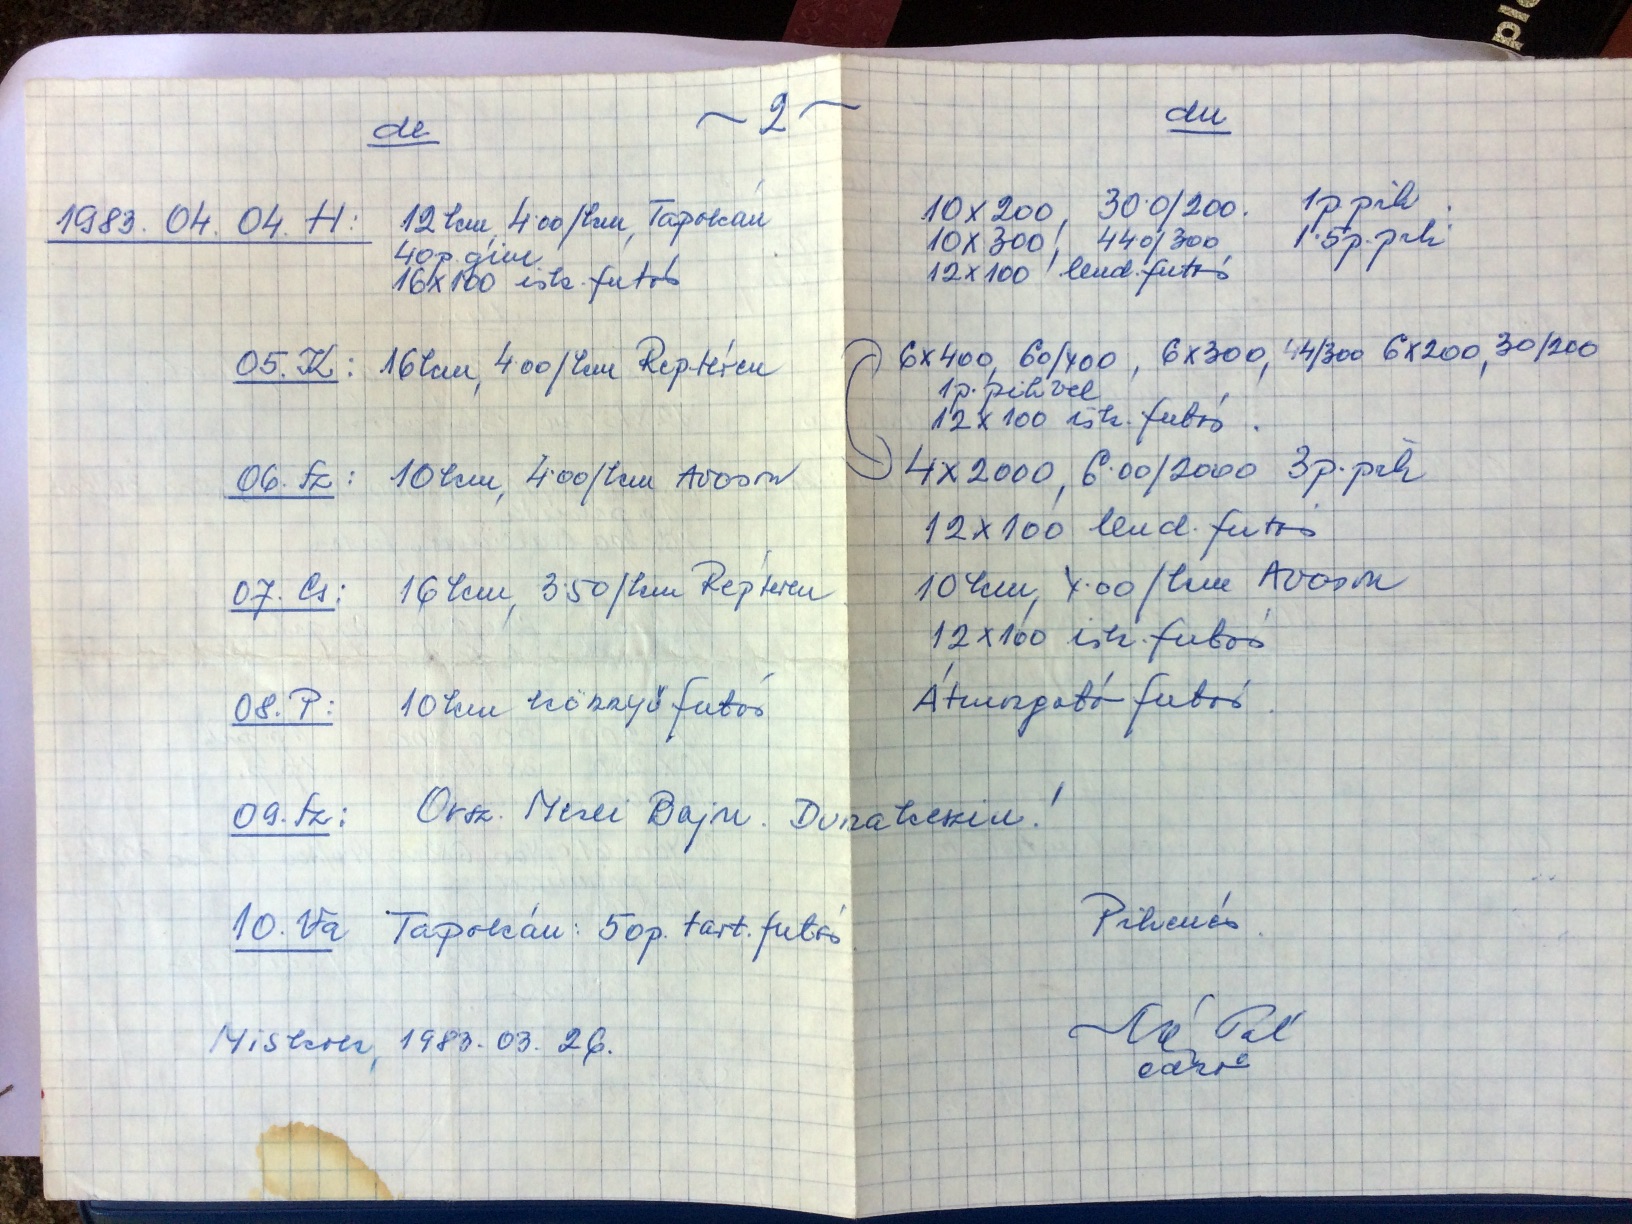 ~ 2 ~
de
du
1983. 04. 04. H: 12 km, 4:00/km, Tapolcán
40 p. gim
16x100 isk. futás
10x200, 30.0/200. 1 p. pih.
10x300, 44.0/300 1.5 p. pih
12x100 lend. futás
05. K: 16 km, 4:00/km Reptéren
6x400, 60/400, 6x300, 44/300 6x200, 30/200
1 p. pihvel
12x100 isk. futás.
06. Sz: 10 km, 4:00/km Avason
4x2000, 6:00/2000 3 p. pih
12x100 lend. futás
07. Cs: 16 km, 3:50/km Reptéren
10 km, 4:00/km Avason
12x100 isk. futás
08. P: 10 km könnyű futás
Átmozgató futás.
09. Sz: Orsz. Mezei Bajn. Dunakeszin!
10. Va Tapolcán: 50 p. tart. futás
Pihenés.
Miskolc, 1983. 03. 26.
Pál
edző